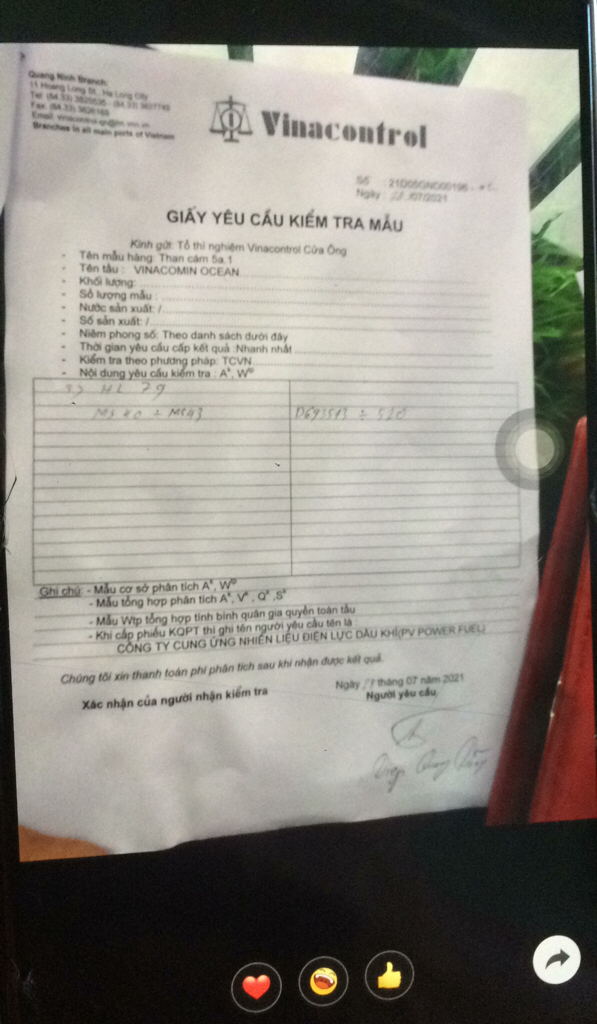 Quang Ninh Branch:
11 Hoang Long St., Ha Long City
Branches in all main ports of Vietnam
Vinacontrol
Số : 21D05GND00196
Ngày : /07/2021
GIẤY YÊU CẦU KIỂM TRA MẪU
Kính gửi: Tổ thí nghiệm Vinacontrol Cửa Ông
- Tên mẫu hàng: Than cám 5a.1
- Tên tàu : VINACOMIN OCEAN
- Khối lượng:
- Số lượng mẫu :
- Nước sản xuất: /
- Số sản xuất: /
- Niêm phong số: Theo danh sách dưới đây
- Thời gian yêu cầu cấp kết quả :Nhanh nhất
- Kiểm tra theo phương pháp: TCVN
- Nội dung yêu cầu kiểm tra : Aᵏ, Wᵗᵖ
HL 79
MS 40 ÷ MS43 D693513 ÷ 520
Ghi chú: - Mẫu cơ sở phân tích Aᵏ, Wᵗᵖ
- Mẫu tổng hợp phân tích Aᵏ, Vᵏ, Qᵏ, Sᵏ
- Mẫu Wtp tổng hợp tính bình quân gia quyền toàn tàu
- Khi cấp phiếu KQPT thì ghi tên người yêu cầu tên là
CÔNG TY CUNG ỨNG NHIÊN LIỆU ĐIỆN LỰC DẦU KHÍ(PV POWER FUEL)
Chúng tôi xin thanh toán phí phân tích sau khi nhận được kết quả.
Ngày tháng 07 năm 2021
Xác nhận của người nhận kiểm tra Người yêu cầu